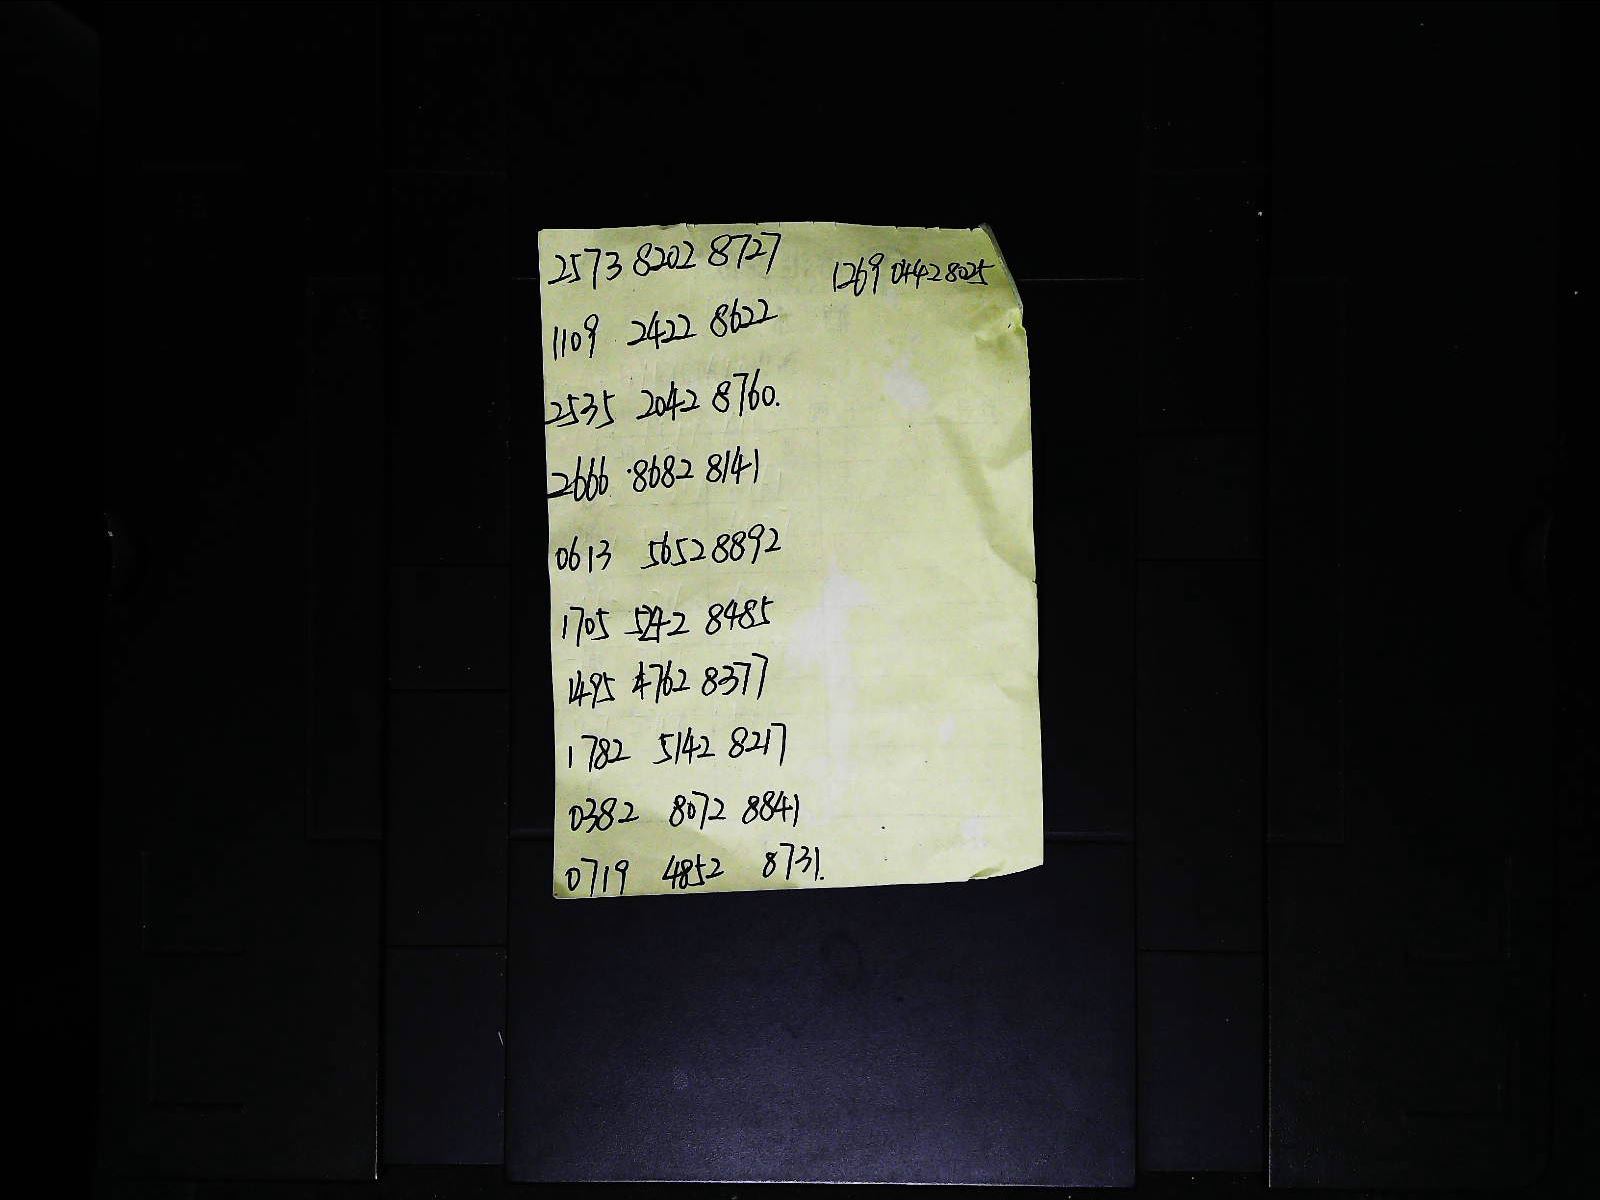 2573 8202 8727
1269 0442 8025
1109 2422 8622
2535 2042 8760.
2666 8682 8141
0613 5652 8892
1705 8485
1495 4762 8377
1782 5142 8217
0382 8072 8841
0719 4852 8731.